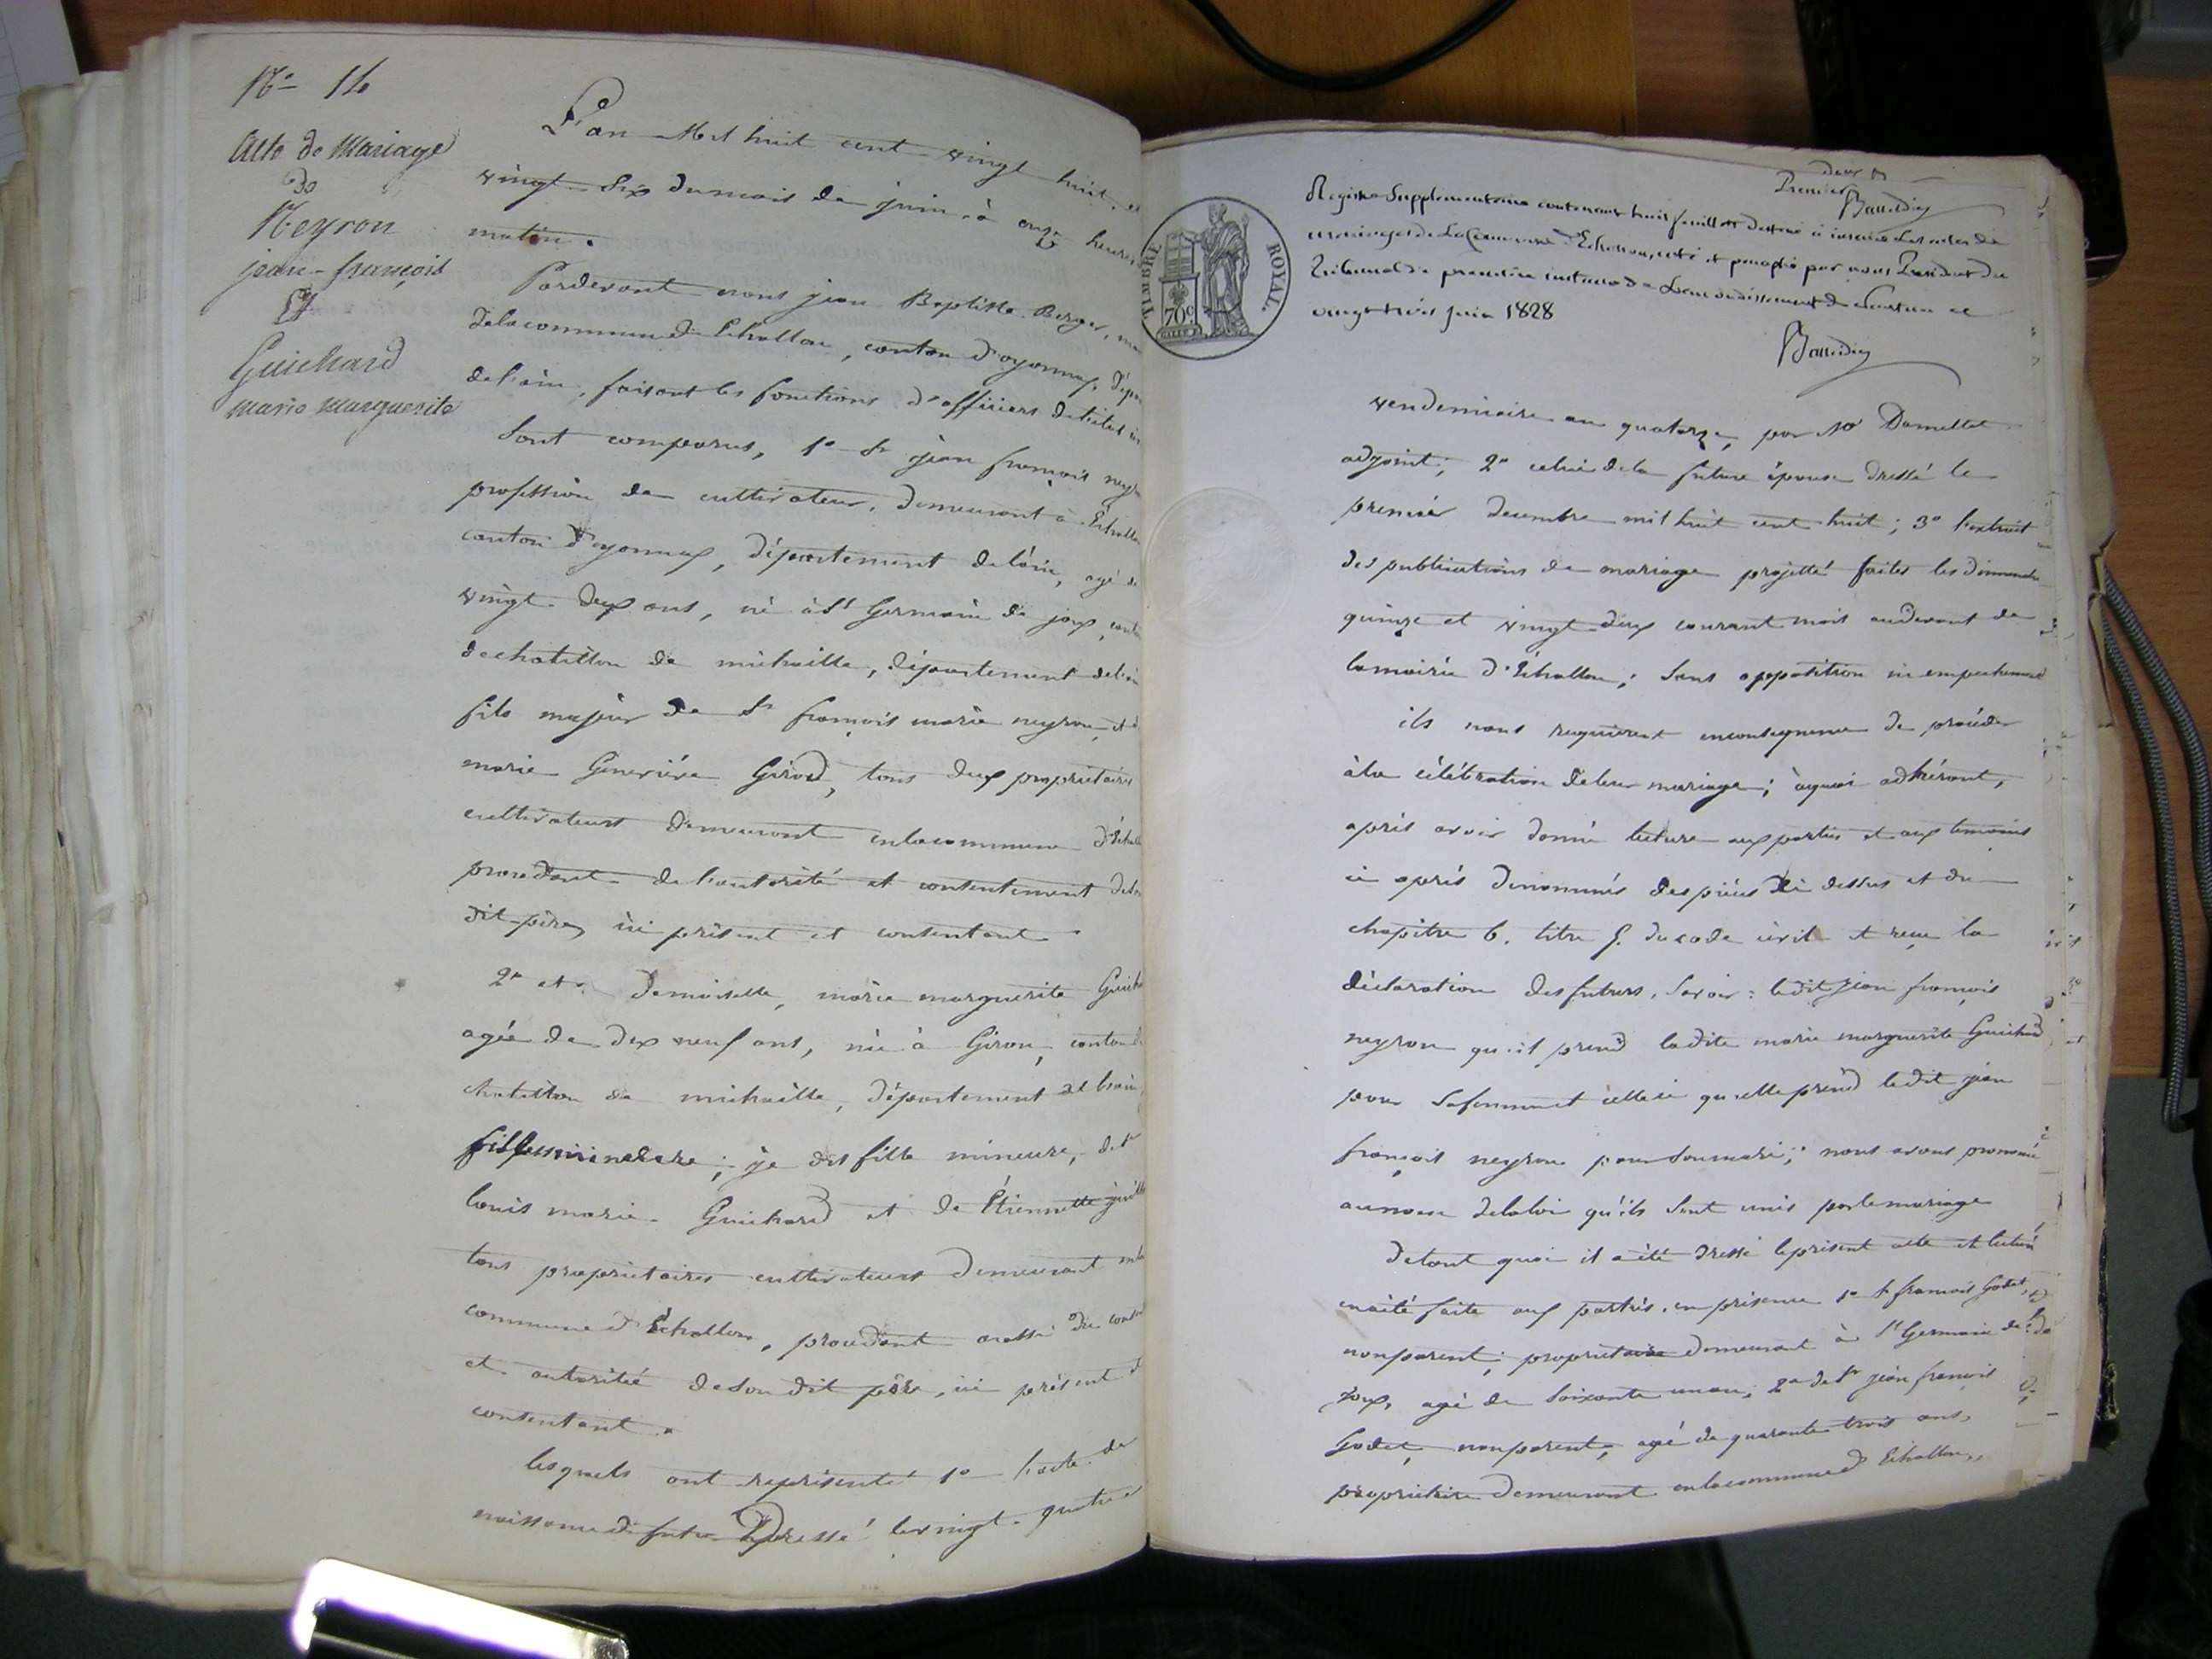 N° 14
Acte de Mariage
de
Neyron
jean-françois
Et
Guichard
marie marguerite
L'an Mil huit cent vingt huit, et
vingt-Six du mois de juin, à onze heures
matin.
Pardevant nous jean Baptiste Berger,
de la commune d'Echallon, canton d'oyonnax, dépar
de l'ain, faisant les fonctions d'officiers de l'état
Sont comparus, 1° Sr jean françois neyr
profession de cultivateur, demeurant à Echallon
canton d'oyonnax, département de l'ain, agé de
vingt-deux ans, né à St Germain de joux, cant
de chatillon de michaille, département de l'ain
fils majeur de Sr françois marie neyron, et d
marie Geneviève Girod, tous deux propriétaires
cultivateurs demeurant en la commune d'Echall
procedant de l'autorité et contentement de so
dit père, ici présent et consentant
2° et Demoiselle, marie marguerite Guich
agée de dix neuf ans, née à Giron, canton d
chatillon de michaille, département de l'ain,
; je dis fille mineure, de Sr
louis marie Guichard et de Étiennette
tous propriétaires cultivateurs demeurant en la
commune d'Échallon, procedant aussi du conse
et autorité de son dit père, ici présent et
contentant.
lesquels ont représenté 1° l'acte de
naissance du futur Dressé le vingt-quatre
deux
Premier
Registre Supplémentaire contenant huit feuillets destiné à inscrire les actes de
mariages de la Commune d'Echallon, coté et paraphé par nous President du
Tribunal de première instance de l'arrondissement de Nantua ce
vingt trois juin 1828
TIMBRE ROYAL.
70c
vendemiaire an quatorze, par Mr Damettet
adjoint; 2° celui de la future épouse dressé le
premier decembre mil huit cent huit; 3° l'extrait
des publications de mariage projetté faites les dimanche
quinze et vingt-deux courant mois au devant de
la mairie d'Echallon; Sans opposition ni empechement
ils nous requièrent en conséquence de procéder
à la célébration de leur mariage; à quoi adhérant,
après avoir donné lecture aux parties et aux temoins
ci après denommés des pièces ci dessus et du
chapitre 6. titre 5. du code civil et reçu la
déclaration des futurs, Savoir: le dit jean françois
neyron qu'il prend la dite marie marguerite Guichard
pour Sa femme et celle ci qu'elle prend le dit jean
françois neyron pour Son mari; nous avons prononcé
au nom de la loi qu'ils Sont unis par le mariage
De tout quoi il a été dressé le présent acte et lecture
en a été faite aux parties, en présence 1° Sr françois Godet,
non parent; propriétaire demeurant à St Germain de
Joux, agé de Soixante un an; 2° de Sr jean françois
Godet, non parent, agé de quarante trois ans,
propriétaire demeurant en la commune d'Echallon,